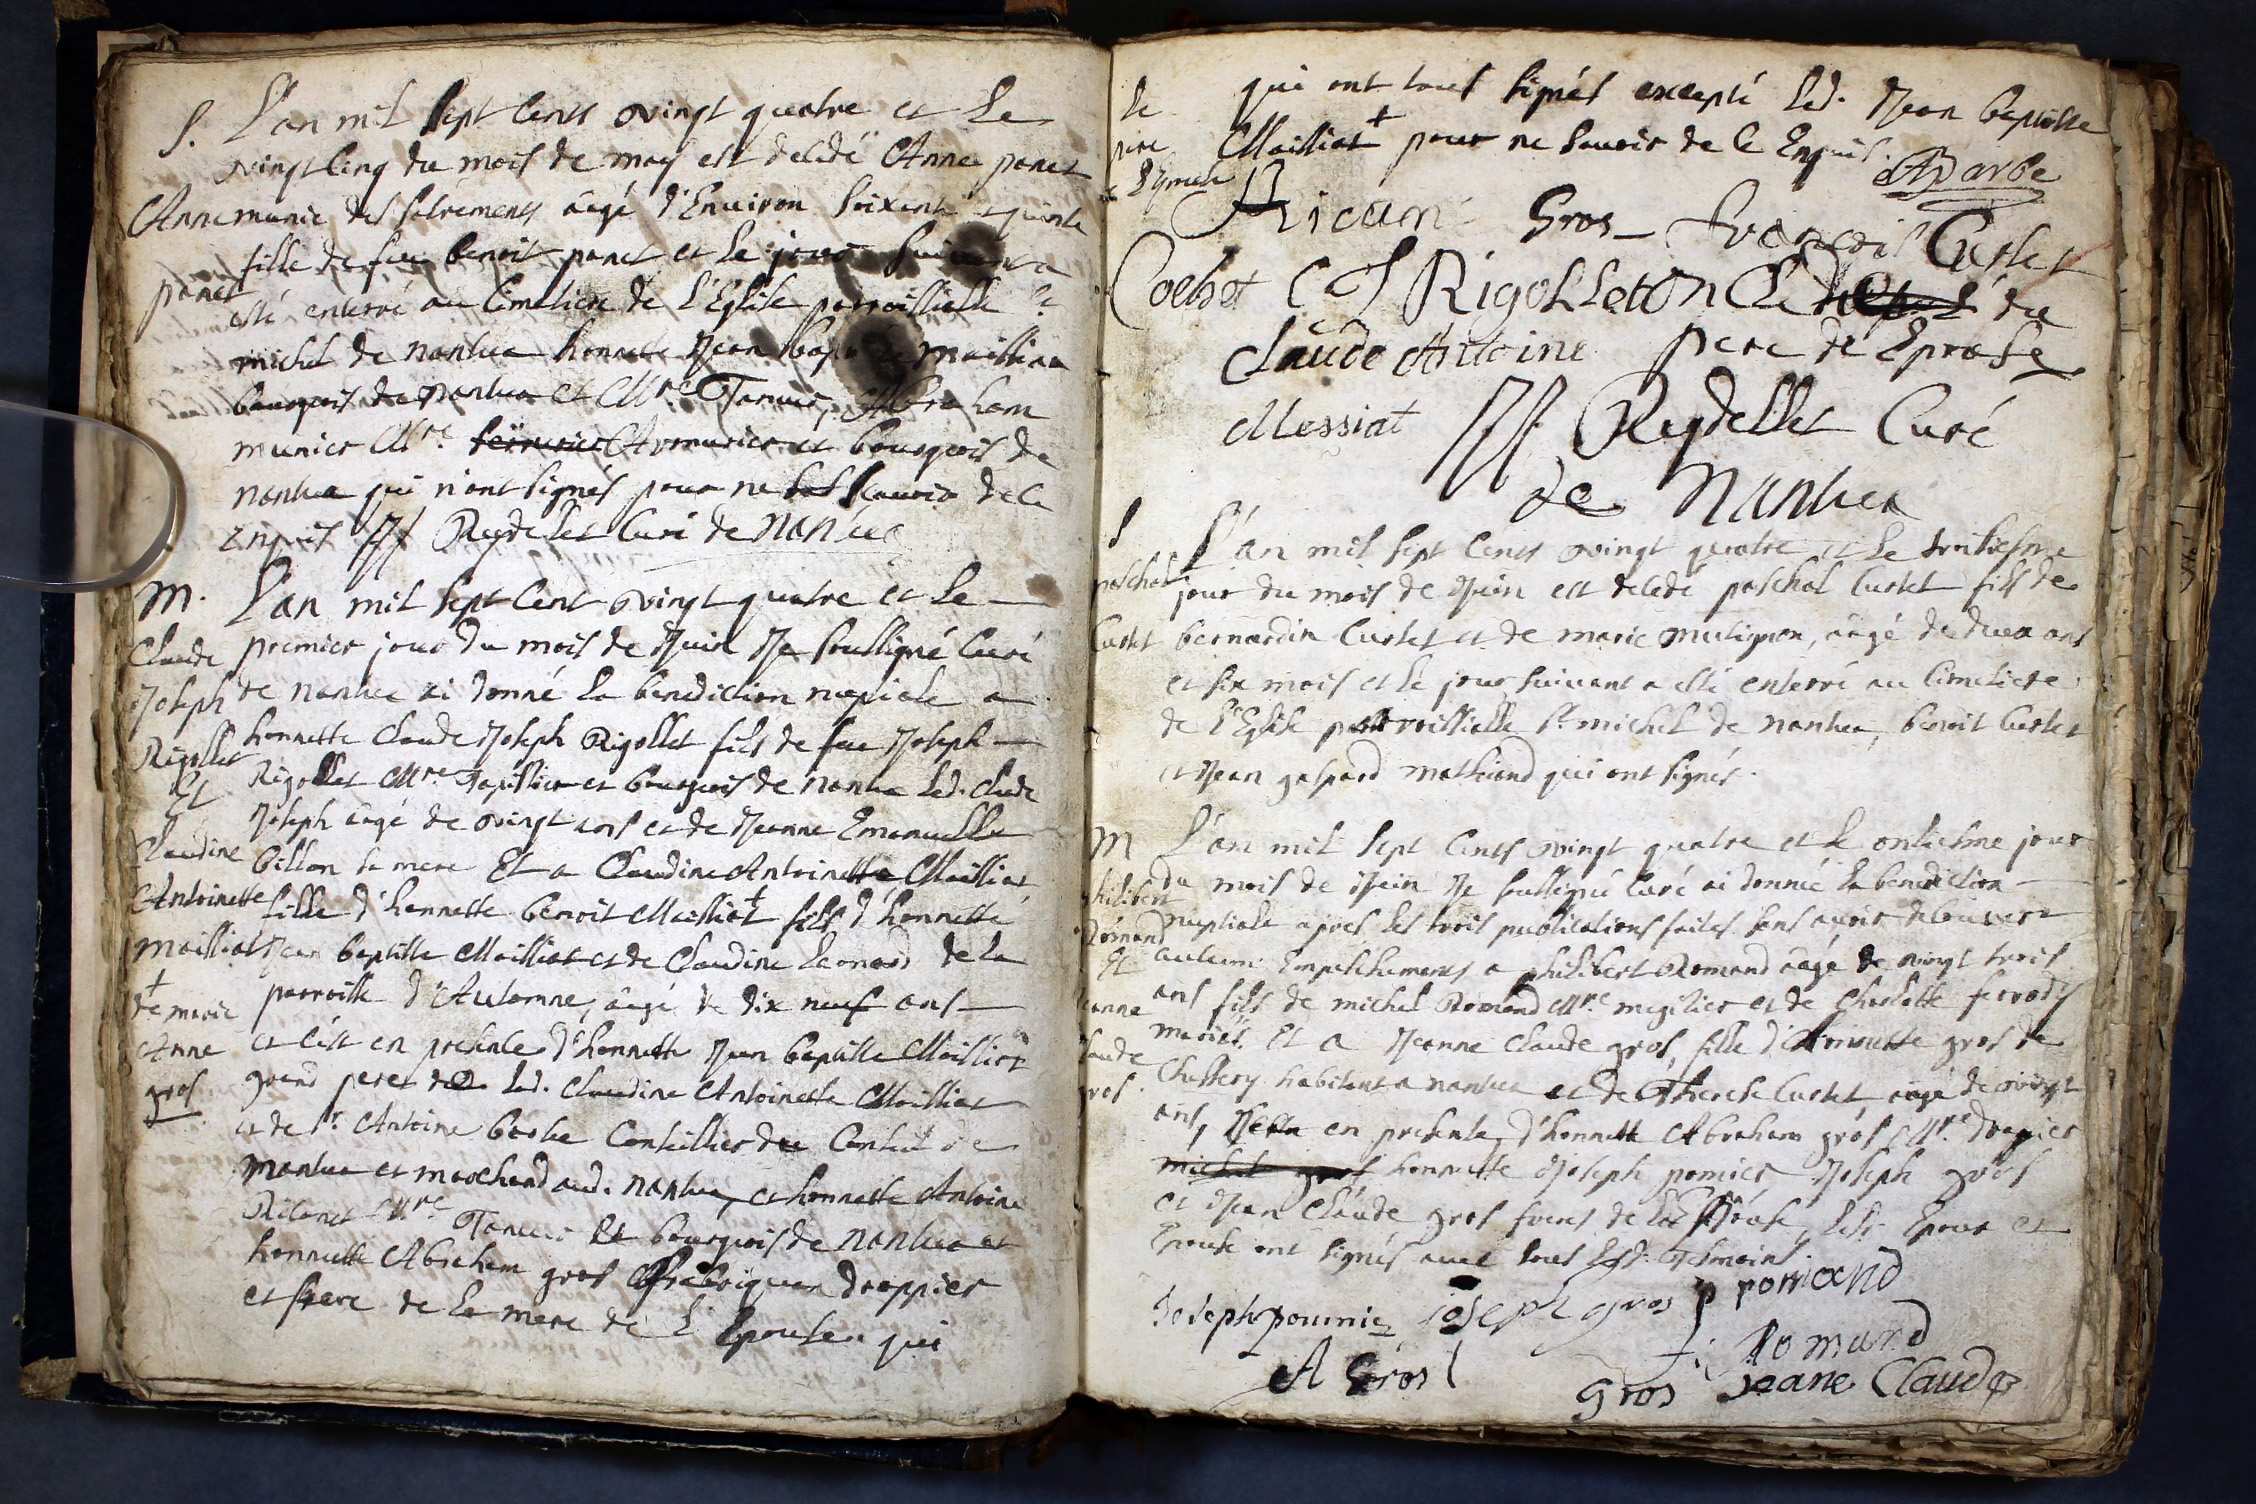 S. L'an mil sept cents vingt quatre et le
vingt cinq du mois de may est decedé Anne panet
Anne munie des sacrements âagé d'Environ soixente et quinse
fille de feu benoit panet et le jour suivant a
panet
esté enterré au Cimetiere de l'Eglise parroissielle st
michel de nantua honnette Jean bapt maillian
bourgeois de nantua et Mre Taneur, Abraham
munier Mre serrurier Armurier et bourgeois de
nantua qui n'ont signés pour ne scavoir de ce
Enquis JJ Reydellet Curé de Nantua
M. L'an mil sept cent vingt quatre et le
Claude premier jour du mois de Juin Je soussigné Curé
Joseph de nantua ai donné la benediction nuptiale a
Rigollet honnette Claude Joseph Rigollet fils de feu Joseph
Et Rigollet Mre Tapissier et bourgeois de nantua led. Claude
Joseph âagé de vingt ans et de Jeanne Emanuelle
Claudine billon sa mere Et a Claudine Antoinette Mailliat
Antoinette fille d'honnette benoit Mailliat + fils d'honnette
mailliat Jean baptiste Mailliat et de Claudine Leonard de la
+ de marie parroisse d'Autonne, âagé de dix neuf ans
Anne et c'est en presence d'honnette Jean baptiste Mailliat
gros grand pere de lad. Claudine Antoinette Mailliat
et de sr. Antoine barbe Conseillier du Conseil de
Nantua et marchand aud. nantua, et honnette Antoine
Ricanet Mre Taneur Et bourgeois de nantua et
honnette Abraham gros fabriqueur drappier
et frere de la mere de l'Epouse qui
le qui ont tous signés excepté led. Jean baptiste
pere Mailliat + pour ne scavoir de ce Enquis.
ABarbe
Ricanè Gros françois Curtet
Coehet C J Rigolleton Cl du
Claude Antoine pere de Eprose
Messiat JJ Reydellet Curé
de Nantua
S L'an mil sept cents vingt quatre et le troisiesme
paschal jour du mois de Juin est decedé paschal Curtet fils de
Curtet bernardin Curtet et de marie mutignon, âagé de deux ans
et six mois et le jour suivant a esté enterré au Cimetiere
de l'Eglise parroissielle st michel de nantua, benoit Curtet
et Jean gaspard mathiand qui ont signés.
M L'an mil sept cents vingt quatre et le onziesme jour
philibert du mois de Juin Je soussigné Curé ai donnée la benediction
Romand nuptiale apres les trois publications faites sans avoir decouvert
Et aucuns Empechements a philibert Romand âagé de vingt trois
jeanne ans fils de michel Romand Mre megisier et de Charlotte
mariés. Et a Jeanne Claude gros, fille d' gros de
Claude Chessery habitant a nantua et de Therese Curtet, âagé de vingt
gros. ans, en presence d'honnette Abraham grós Mre drapier
michel gros honnette Joseph pomier Joseph gros
et Jean Claude gros freres de la Epouse, lesd. Epoux et
Epouse ont signés avec tous lesd. Tesmoins.
Joseph poumier joseph gros p romand
Romand
A Gros gros Jeane Claude